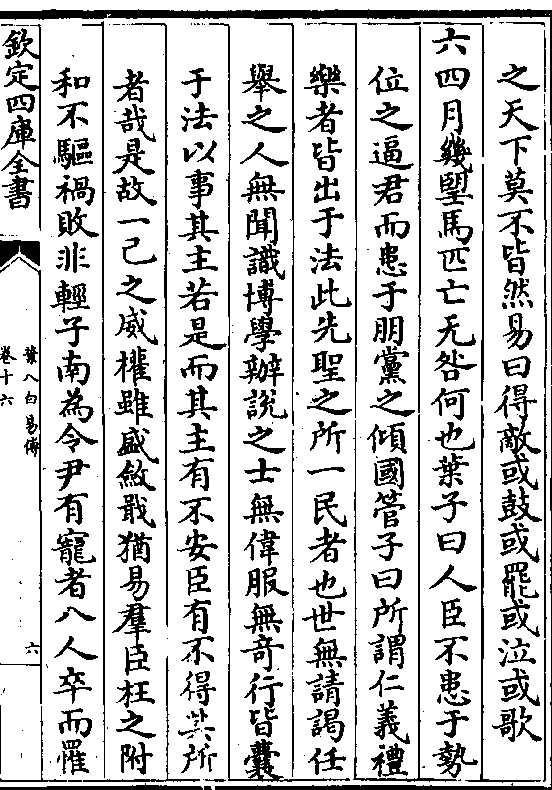 之天下莫不皆然易曰得敵或鼓或罷或泣或歌
六四月幾望馬匹亡无咎何也葉子曰人臣不患于勢
位之逼君而患于朋黨之傾國管子曰所謂仁義禮
樂者皆出于法此先聖之所一民者也世無請謁任
舉之人無聞識博學辦說之士無偉服無奇行皆囊
于法以事其主若是而其主有不安臣有不得其所
者哉是故一己之威權雖盛斂戢猶易羣臣枉之附
和不驅禍敗非輕子南為令尹有寵者八人卒而罹
欽定四庫全書
葉八白易傳
卷十六
六